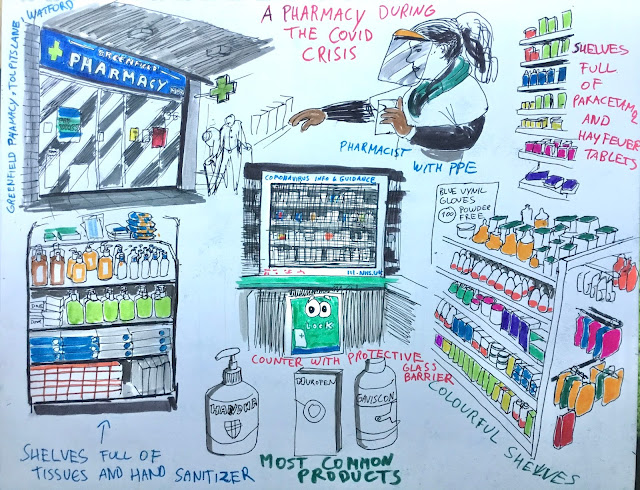 WATFORD
GREENFIELD PHAMACY, TOLPITSLANE,
GREENFIELD
PHARMACY
A PHARMACY DURING
THE COVID
CRISIS
PHARMACIST
WITH PPE
SHELVES
FULL
OF
PARACETAMOL
AND
HAYFEVER
TABLETS
CORONAVIRUS INFO & GUIDANCE
111.NHS.UK
LOCK
COUNTER WITH PROTECTIVE
GLASS
BARRIER
BLUE VYNIL
GLOVES
100
POWDER
FREE
COLOURFUL SHELVES
SHELVES FULL OF
TISSUES AND HAND SANITIZER
NUROFEN
GAVISCON
MOST COMMON
PRODUCTS